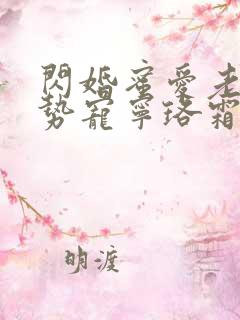 閃婚蜜愛老
勢寵寧珞霜
明渡